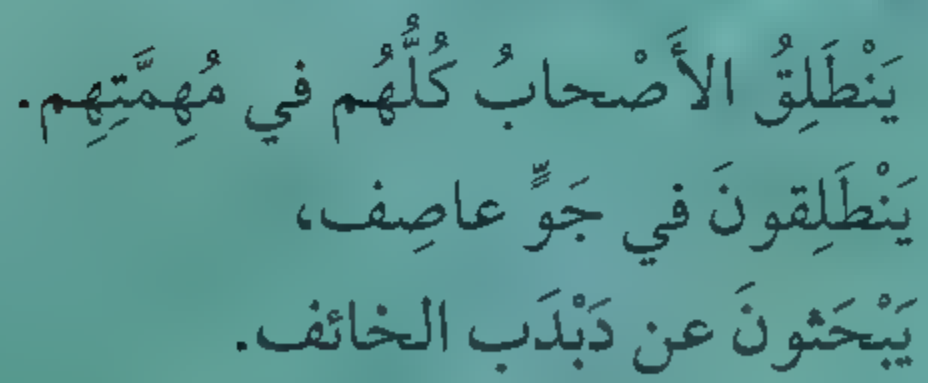 يَنْطَلِقُ الأَصْحابُ كُلُّهُم في مُهِمَّتِهِم.
يَنْطَلِقونَ في جَوٍّ عاصِف،
يَبْحَثونَ عن دَبْدَب الخائف.